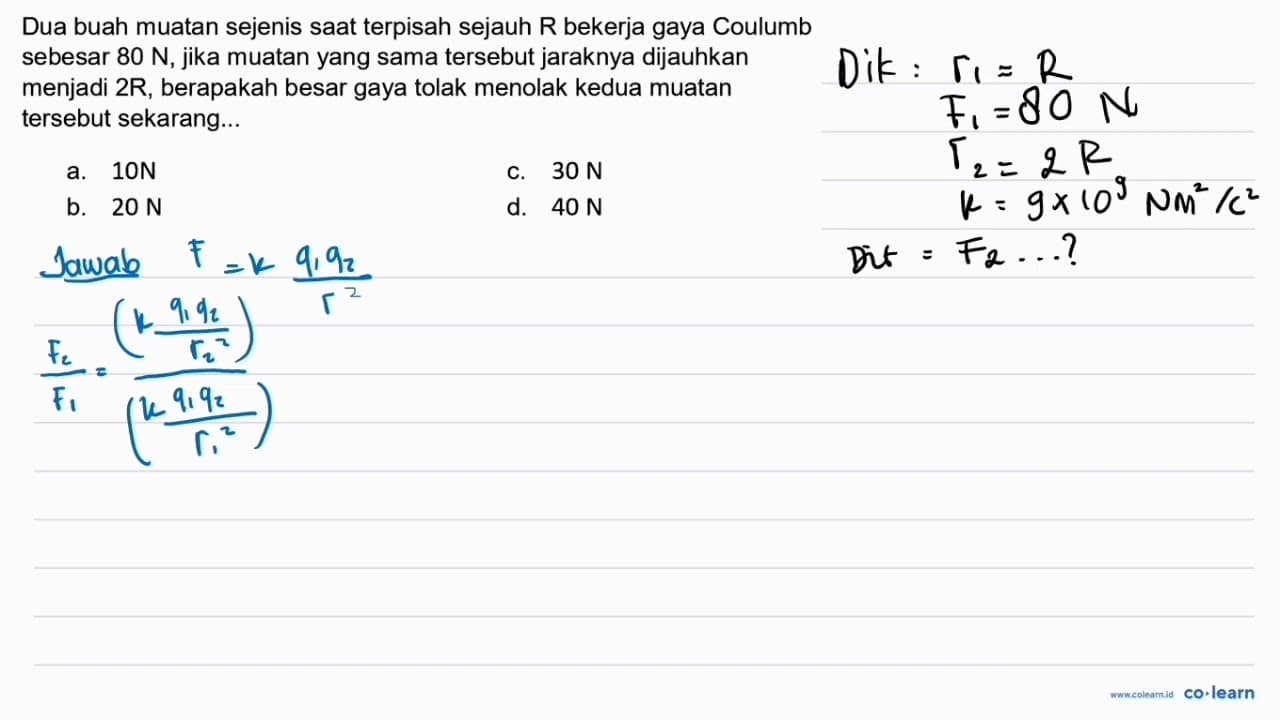 Dua buah muatan sejenis saat terpisah sejauh R bekerja gaya Coulumb
sebesar 80 N, jika muatan yang sama tersebut jaraknya dijauhkan
menjadi 2R, berapakah besar gaya tolak menolak kedua muatan
tersebut sekarang...
a. 10N
c. 30 N
b. 20 N
d. 40 N
Dik : r₁ = R
F₁ = 80 N
r₂ = 2 R
k = 9 × 10⁹ NM²/C²
Dit = F₂ ...?
Jawab F = k q₁ q₂ / r²
F₂ / F₁ = (k q₁ q₂ / r₂²) / (k q₁ q₂ / r₁²)
www.colearn.id co·learn